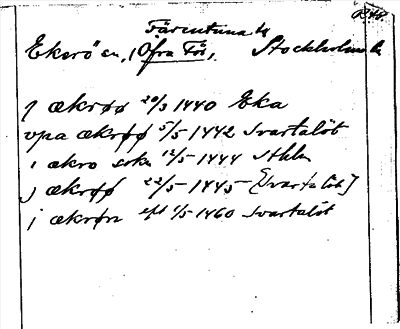 Färentuna hd
Ekerö sn, (Öfra Tör), Stockholms l.
j ækrøø 20/3 1440 Eka
vpa ækrøø 5/5 1442 Svartalöt
i ækro sokn 12/5 1444 Sthlm
j ækrøø 22/5 1445 [Svartalöt]
j ækrøn eft 1/5 1460 Svartalöt